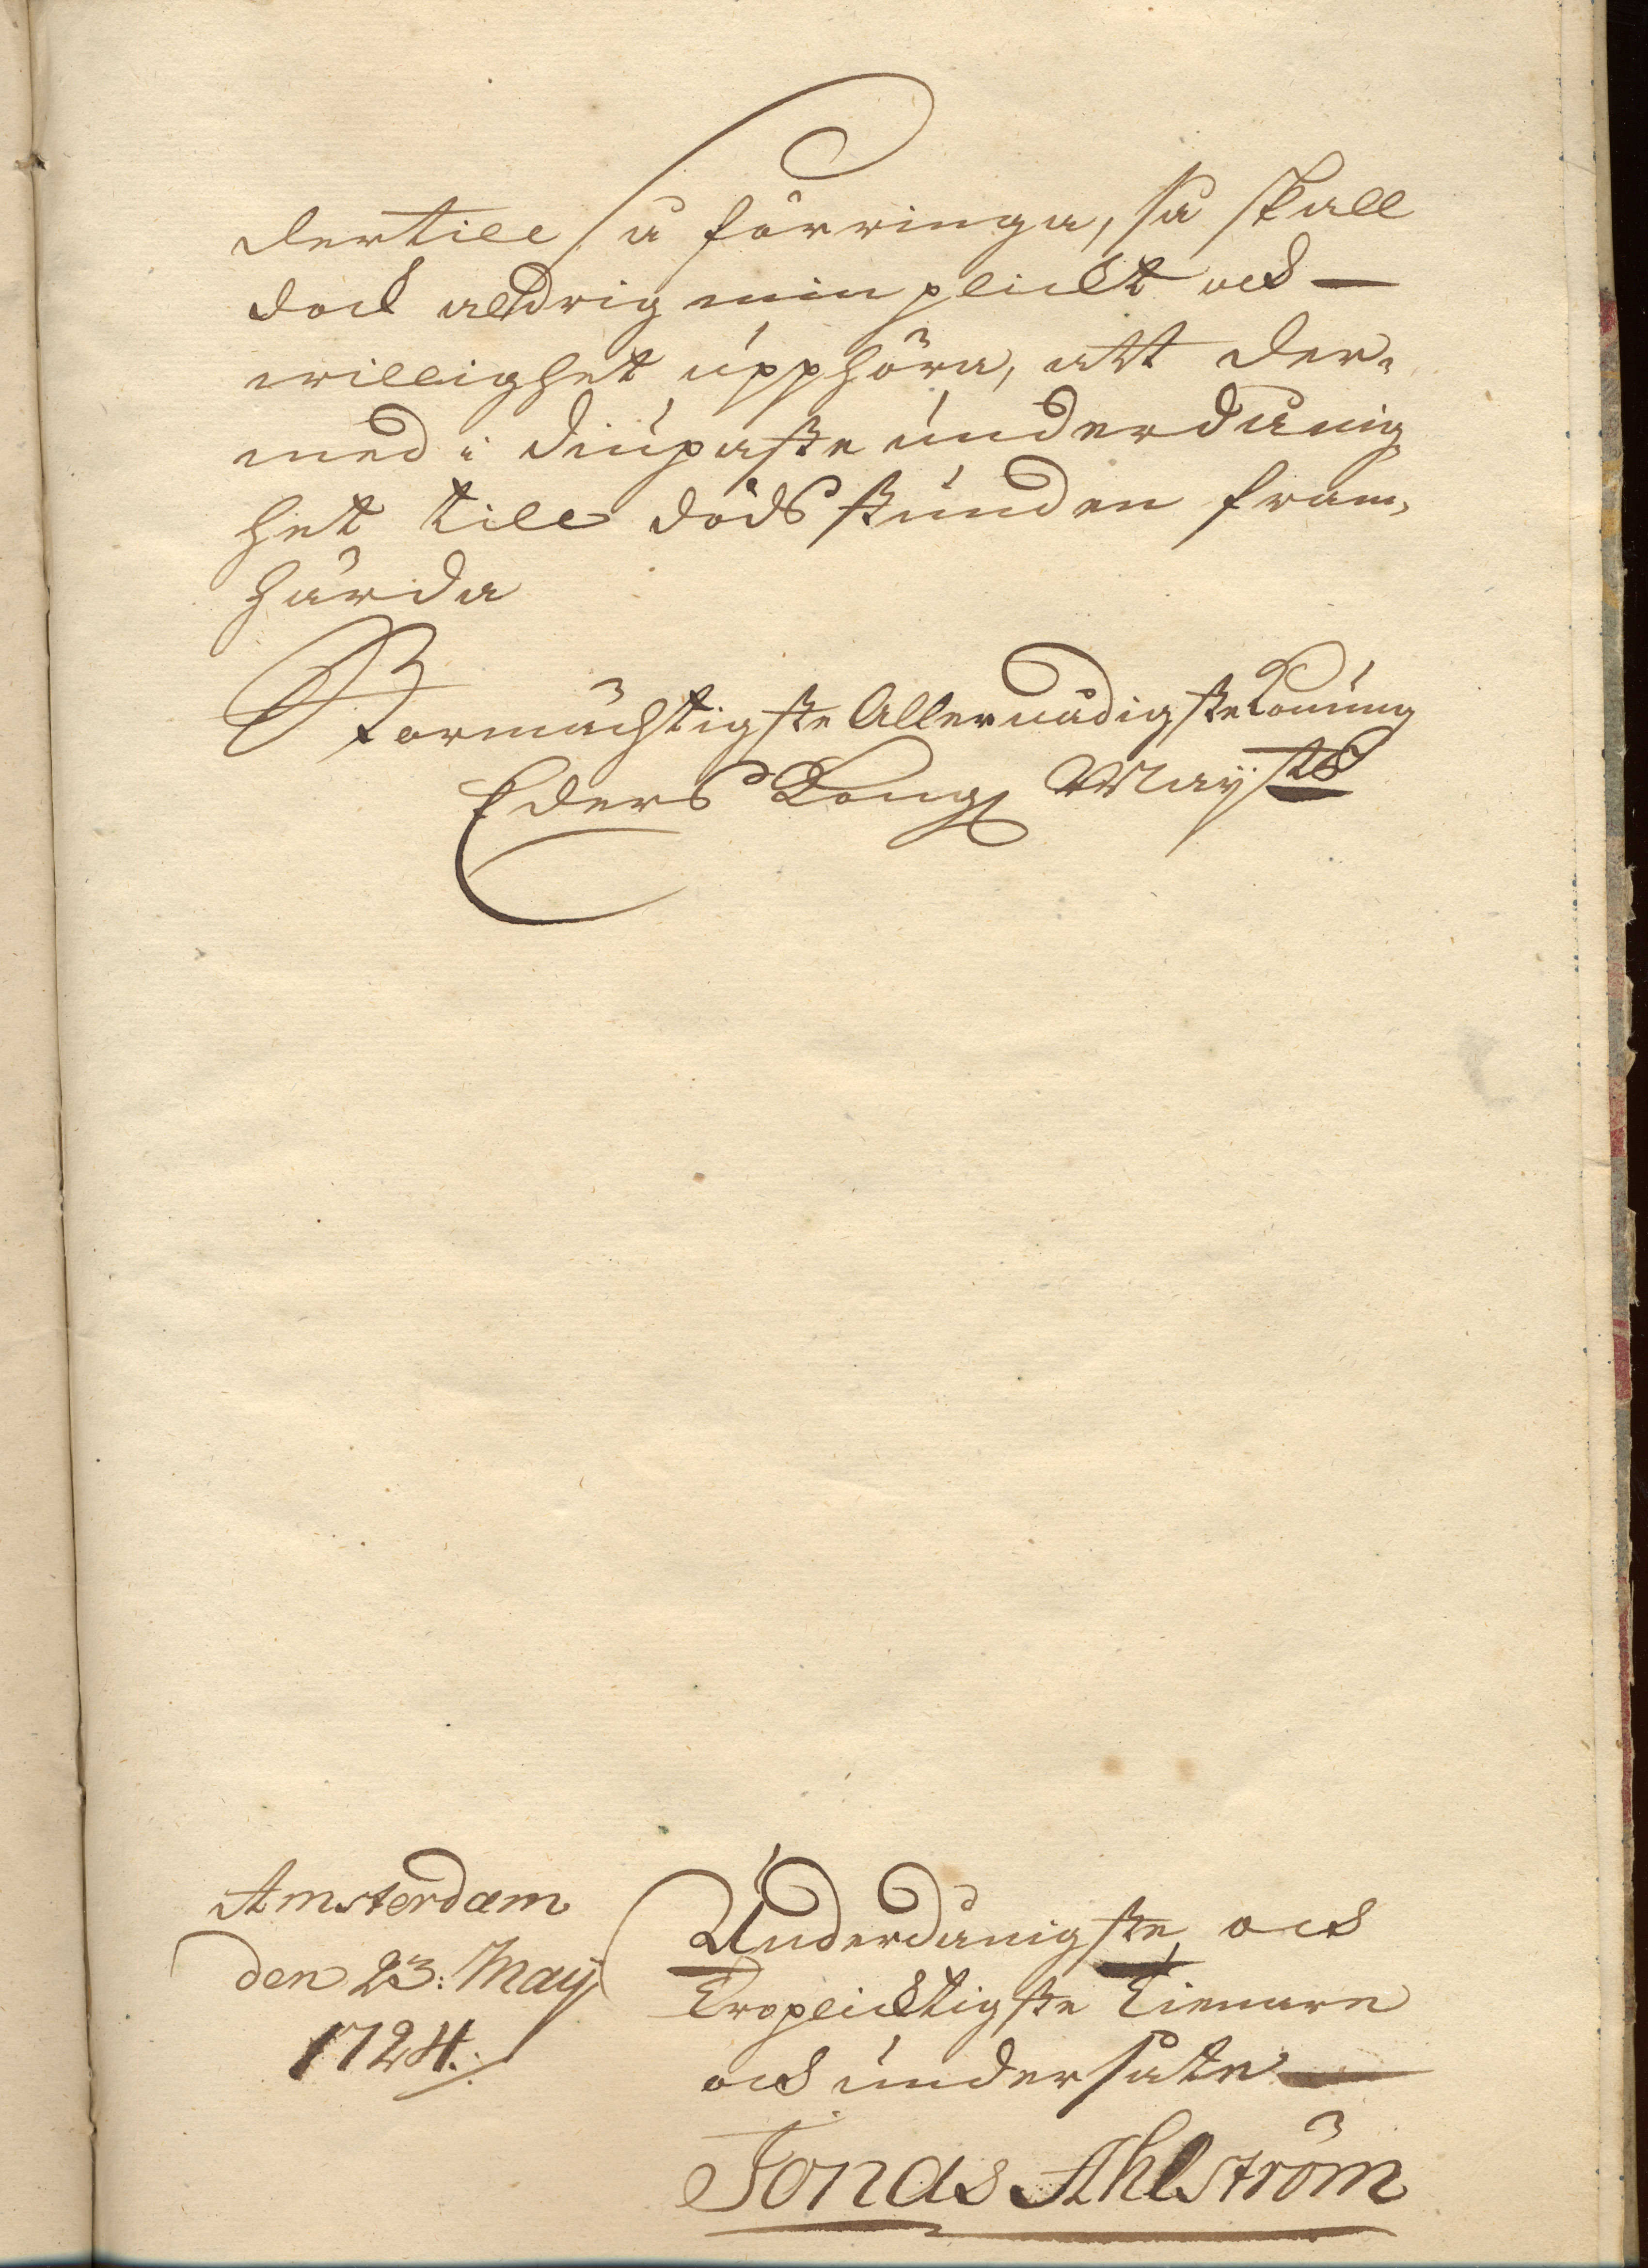 dertill så förringa, så skall
dock aldrig min plickt ock —
willighet upphöra, att der-
med i diupaste underdånig
het till döds stunden fram-
härda
Stormächtigste Allernådigste Konung
Eders Kong Maÿts
Amsterdam
den 23: Maij
1724.
Underdånigste ock
Troplicktigste Tienare
ock undersåte
Jonas Ahlström